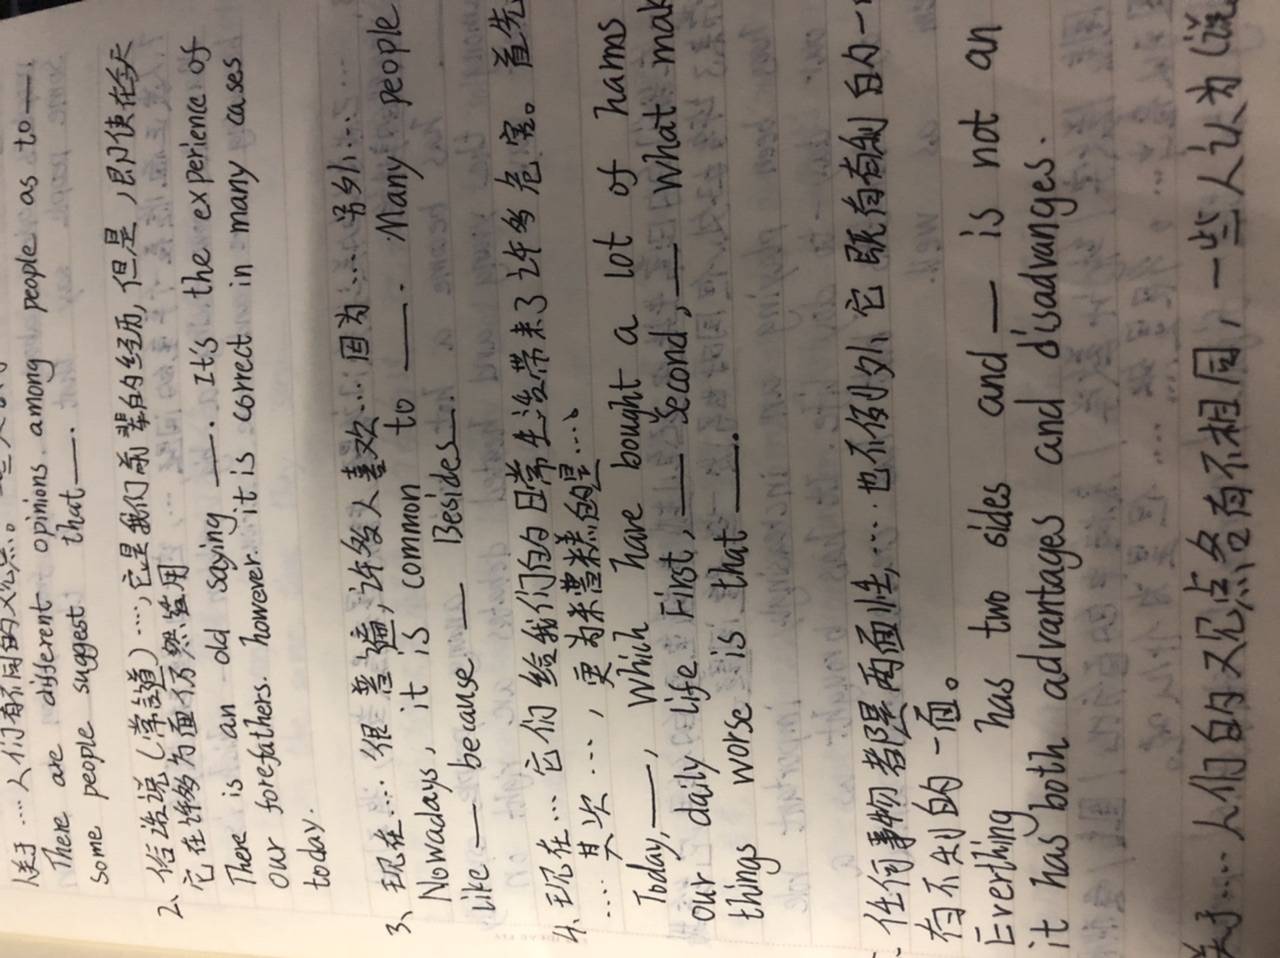 关于……人们有不同的观点。一些人
There are different opinions among people as to —.
some people suggest that —.
2、俗话说(常话道)……,它是我们前辈的经历,但是,即使在今天
它在许多方面仍然适用
There is an old saying —. It's the experience of
our forefathers. however it is correct in many cases
today.
3、现在…. 很普遍,许多人喜欢…. 因为…. 另外….
Nowadays, it is common to —. Many people
like — because — Besides —.
4、现在… 它们给我们的日常生活带来了许多危害。首先
…. 其次…., 更为糟糕的是….、
Today, —, which have bought a lot of hams
our daily life First, — Second, — What mak
things worse is that —.
、任何事物都是两面性, …. 也不例外, 它既有有利的一
有不利的一面。
Everthing has two sides and — is not an
it has both advantages and disadvanges.
关于…. 人们的观点各有不相同, 一些人认为(说